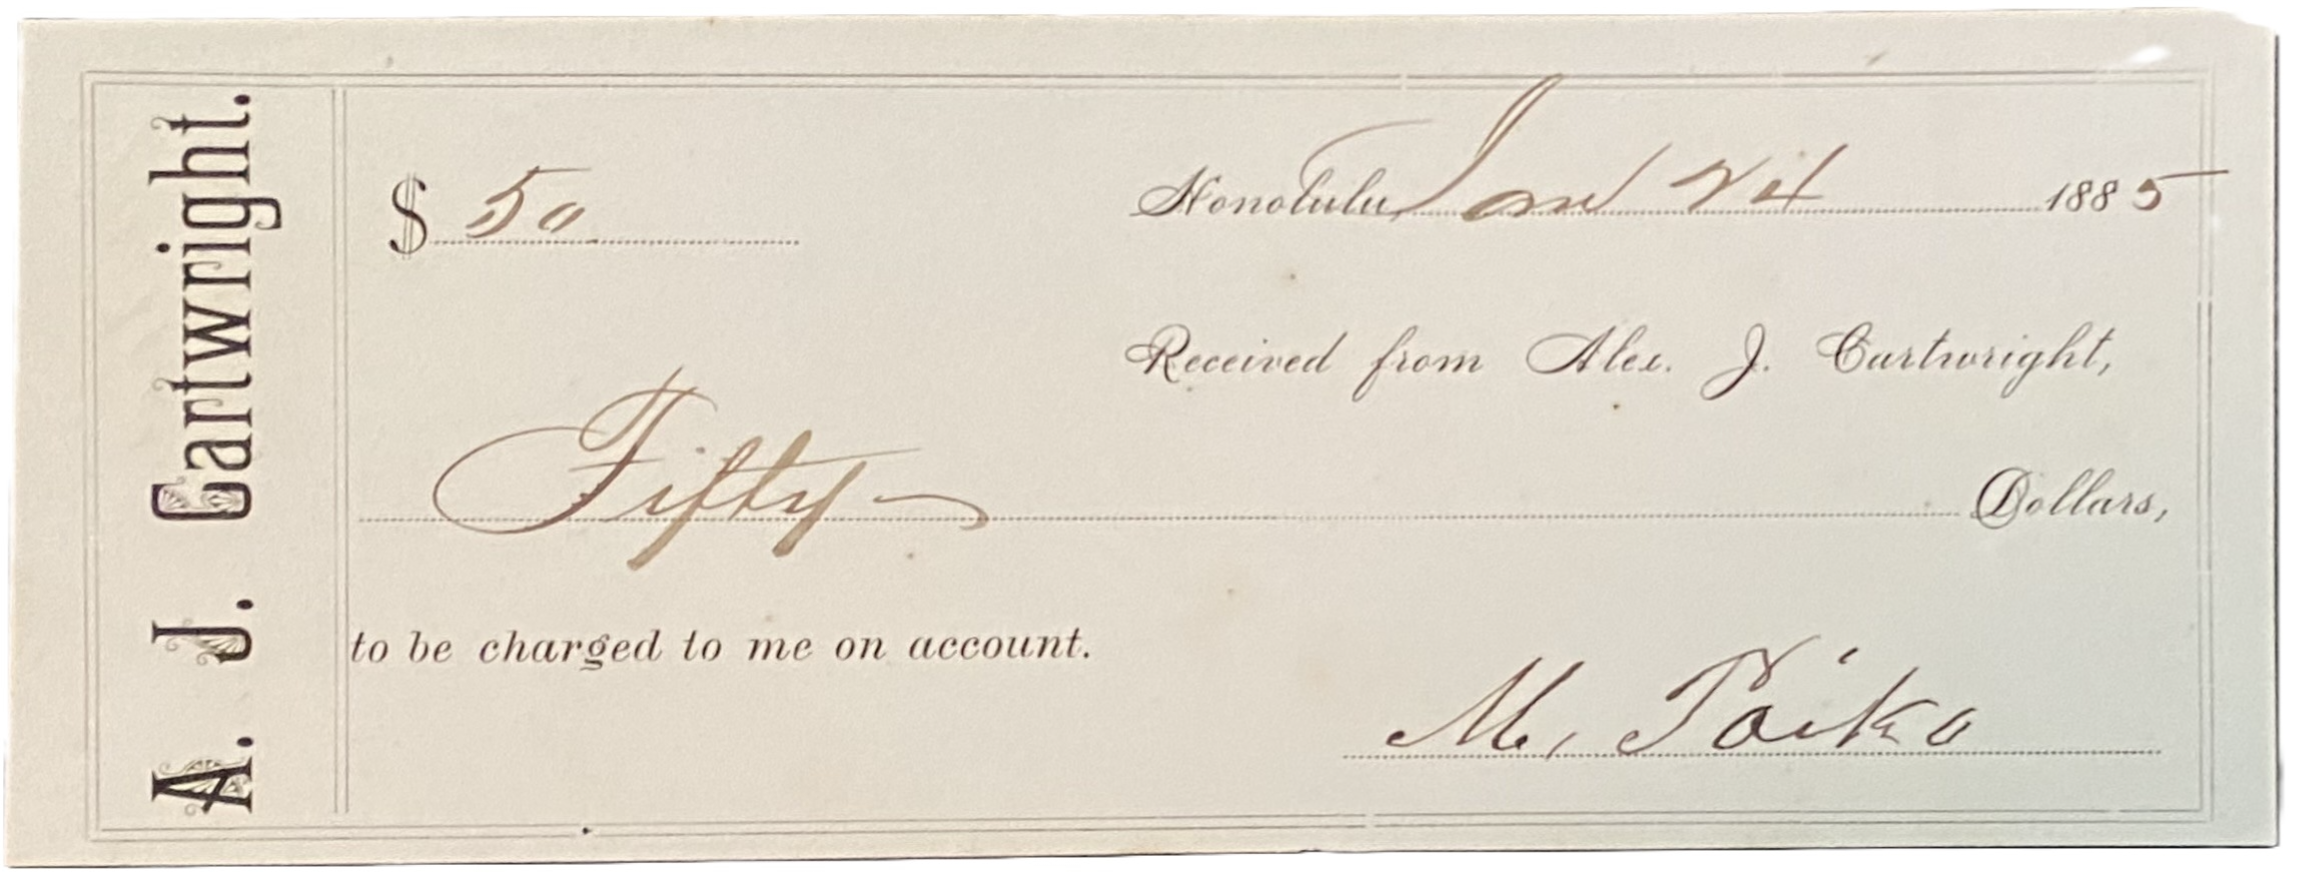 A. J. Cartwright.
$ 50
Honolulu, Jan 24 1885
Received from Alex. J. Cartwright,
Fifty Dollars,
to be charged to me on account.
M,